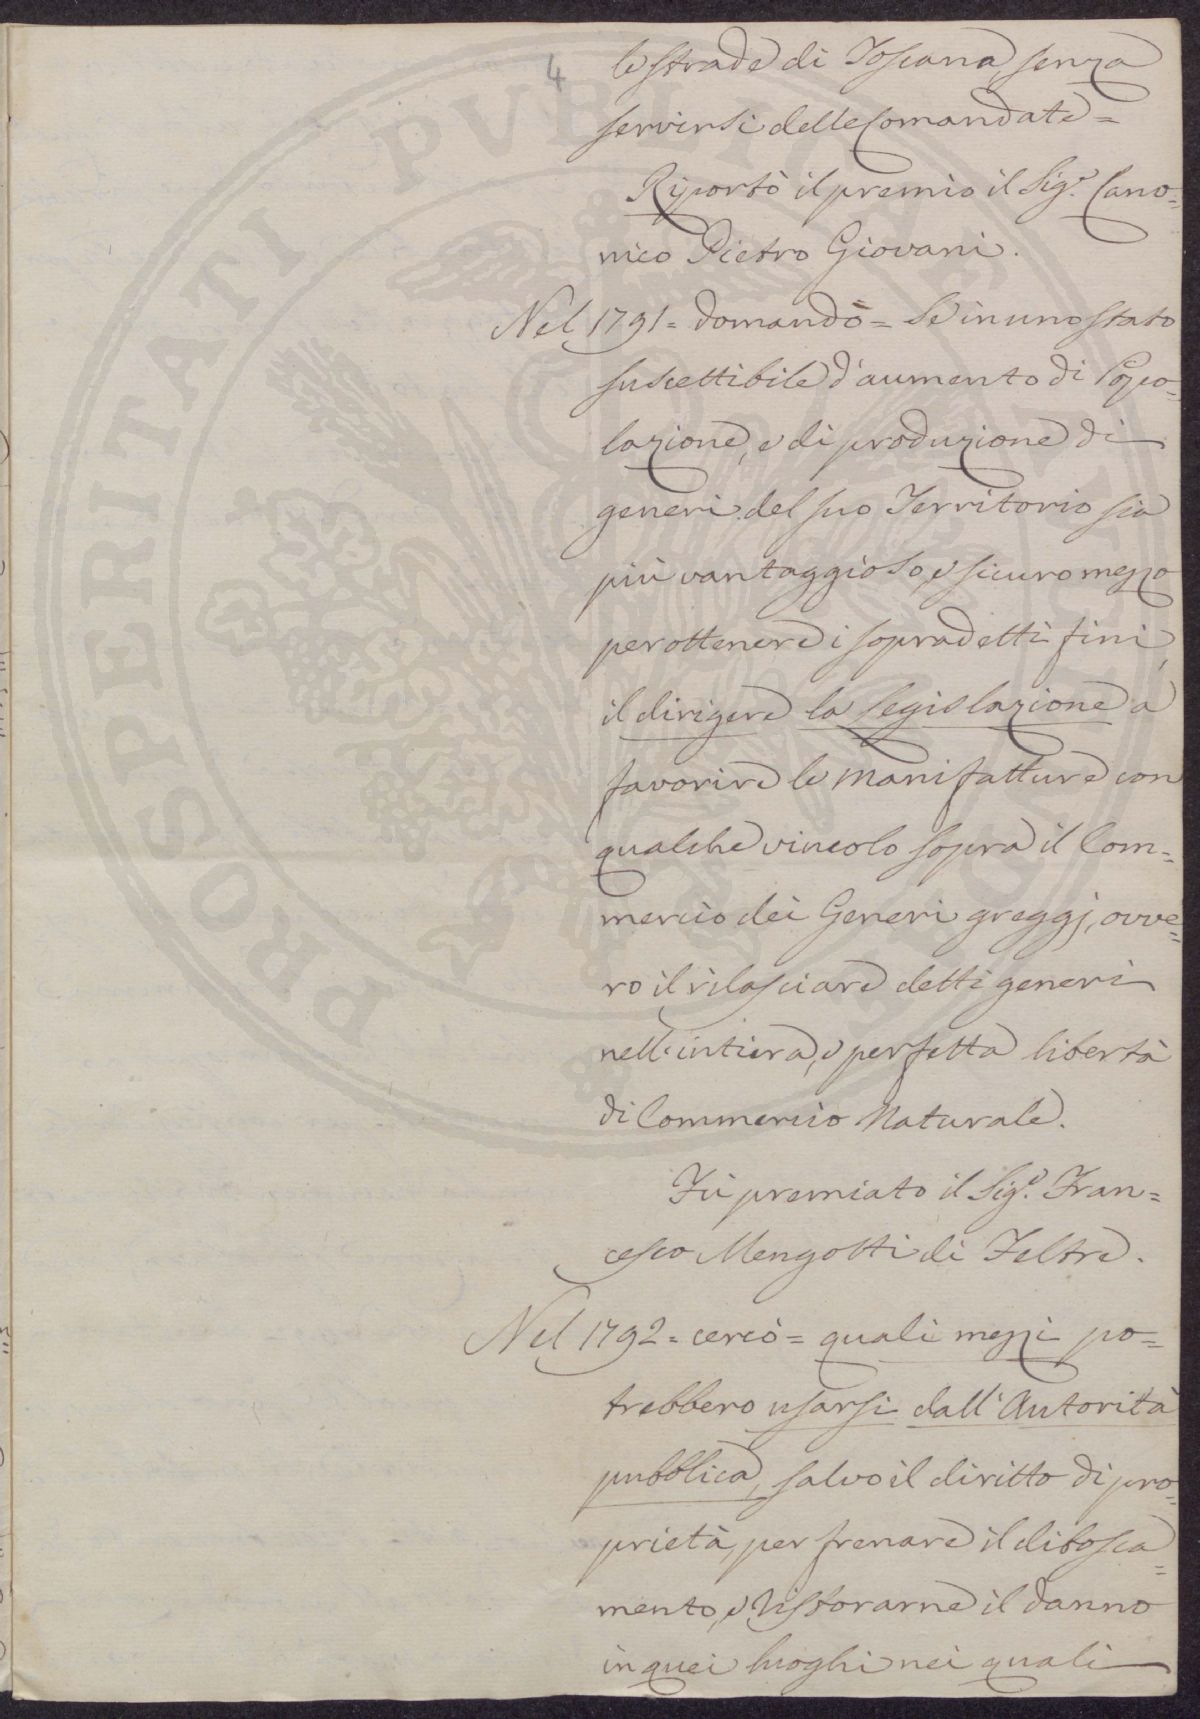 4
le strade di Toscana, senza
servirsi delle Comandate =
Riportò il premio il Sig.r Cano=
nico Pietro Giovani.
Nel 1791 = domandò = Se in uno stato
suscettibile d'aumento di Popo=
lazione, e di produzione di
generi del suo Territorio sia
più vantaggioso, e sicuro mezzo
per ottenere i sopradetti fini,
il dirigere la legislazione a
favorire le manifatture con
qualche vincolo sopra il Com=
mercio dei Generi greggj, ovve=
ro il rilasciare detti generi
nell'intiera, e perfetta libertà
di Commercio Naturale.
Fù premiato il Sig.r Fran=
cesco Mengotti di Feltre.
Nel 1792 = cercò = quali mezzi po=
trebbero usarsi dall'Autorità
pubblica, salvo il diritto di pro=
prietà, per frenare il disbosca=
mento, e ristorarne il danno
in quei luoghi nei quali
PROSPERITATI PUBLICAE